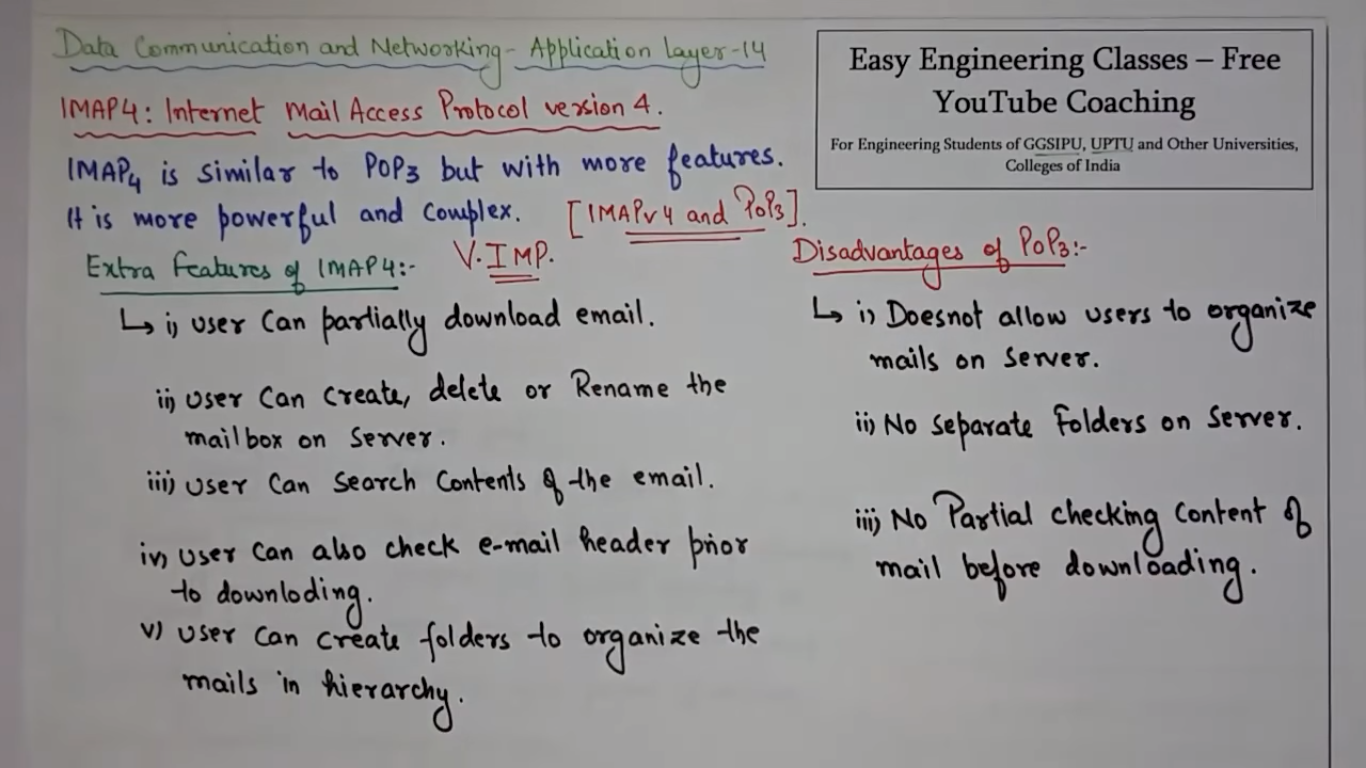 Data Communication and Networking- Application Layer-14
Easy Engineering Classes – Free
YouTube Coaching
For Engineering Students of GGSIPU, UPTU and Other Universities,
Colleges of India
IMAP4: Internet Mail Access Protocol version 4.
IMAP4 is similar to POP3 but with more features.
It is more powerful and complex. [IMAPv4 and POP3].
V.IMP.
Extra features of IMAP4:-
↳ i) user can partially download email.
ii) user can create, delete or Rename the
mailbox on server.
iii) user can search contents of the email.
iv) user can also check e-mail header prior
to downloding.
v) user can create folders to organize the
mails in hierarchy.
Disadvantages of POP3:-
↳ i) Doesnot allow users to organize
mails on server.
ii) No separate folders on server.
iii) No Partial checking content of
mail before downloading.